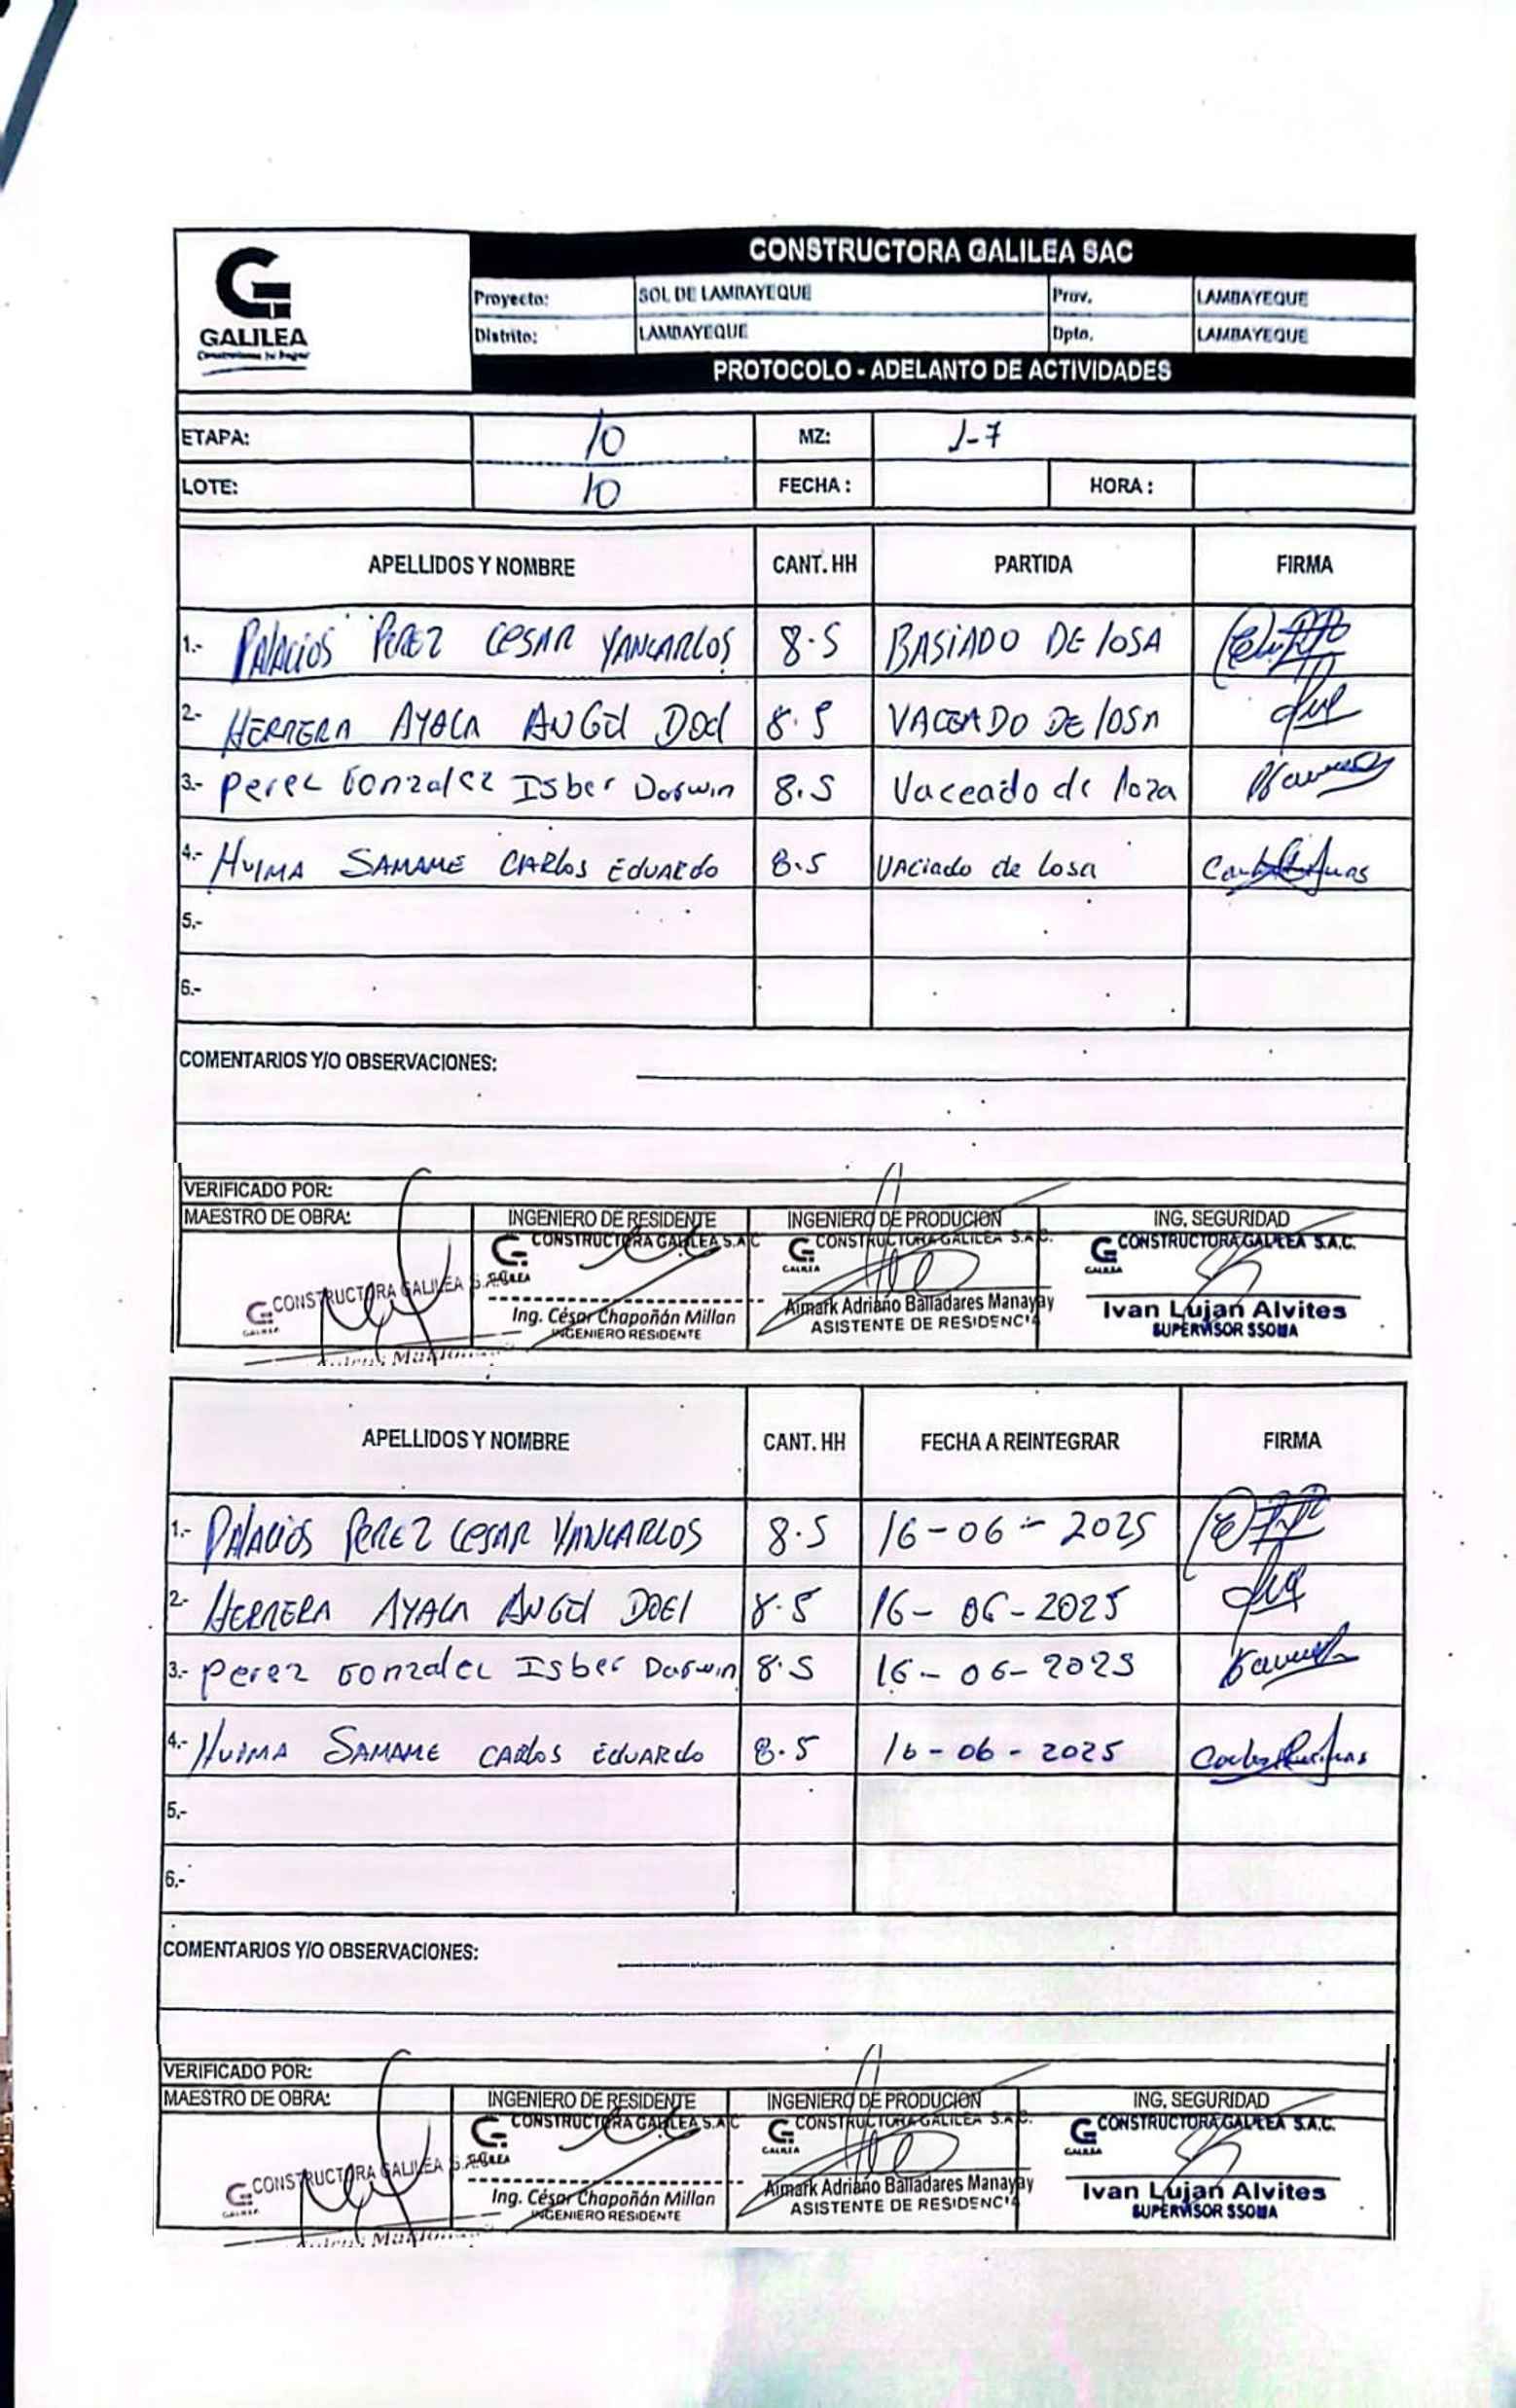 CONSTRUCTORA GALILEA SAC
GALILEA
Construimos tu hogar
Proyecto: SOL DE LAMBAYEQUE Prov. LAMBAYEQUE
Distrito: LAMBAYEQUE Dpto. LAMBAYEQUE
PROTOCOLO - ADELANTO DE ACTIVIDADES
ETAPA: 10 MZ: J-7
LOTE: 10 FECHA : HORA :
APELLIDOS Y NOMBRE CANT. HH PARTIDA FIRMA
1.- PALACIOS PEREZ CESAR YANCARLOS 8.5 BASIADO DE LOSA
2- HERRERA AYALA ANGEL DOEL 8.5 VACEADO DE LOSA
3.- Perez Gonzalez Isber Darwin 8.5 Vaceado de loza
4.- HUIMA SAMAME CARLOS EDUARDO 8.5 VACiado de Losa
5.-
6.-
COMENTARIOS Y/O OBSERVACIONES:
VERIFICADO POR:
MAESTRO DE OBRA: INGENIERO DE RESIDENTE INGENIERO DE PRODUCION ING. SEGURIDAD
CONSTRUCTORA GALILEA S.A.C. CONSTRUCTORA GALILEA S.A.C CONSTRUCTORA GALILEA S.A.C. CONSTRUCTORA GALILEA S.A.C.
GALILEA GALILEA GALILEA GALILEA
Ing. César Chapoñán Millan Aimark Adriano Balladares Manayay Ivan Lujan Alvites
INGENIERO RESIDENTE ASISTENTE DE RESIDENCIA SUPERVISOR SSOMA
APELLIDOS Y NOMBRE CANT. HH FECHA A REINTEGRAR FIRMA
1.- PALACIOS PEREZ CESAR YANCARLOS 8.5 16-06-2025
2- HERRERA AYALA ANGEL DOEL 8.5 16-06-2025
3.- Perez Gonzalez Isber Darwin 8.5 16-06-2025
4.- HUIMA SAMAME CARLOS EDUARDO 8.5 16-06-2025
5.-
6.-
COMENTARIOS Y/O OBSERVACIONES:
VERIFICADO POR:
MAESTRO DE OBRA: INGENIERO DE RESIDENTE INGENIERO DE PRODUCION ING. SEGURIDAD
CONSTRUCTORA GALILEA S.A.C. CONSTRUCTORA GALILEA S.A.C CONSTRUCTORA GALILEA S.A.C. CONSTRUCTORA GALILEA S.A.C.
GALILEA GALILEA GALILEA GALILEA
Ing. César Chapoñán Millan Aimark Adriano Balladares Manayay Ivan Lujan Alvites
INGENIERO RESIDENTE ASISTENTE DE RESIDENCIA SUPERVISOR SSOMA